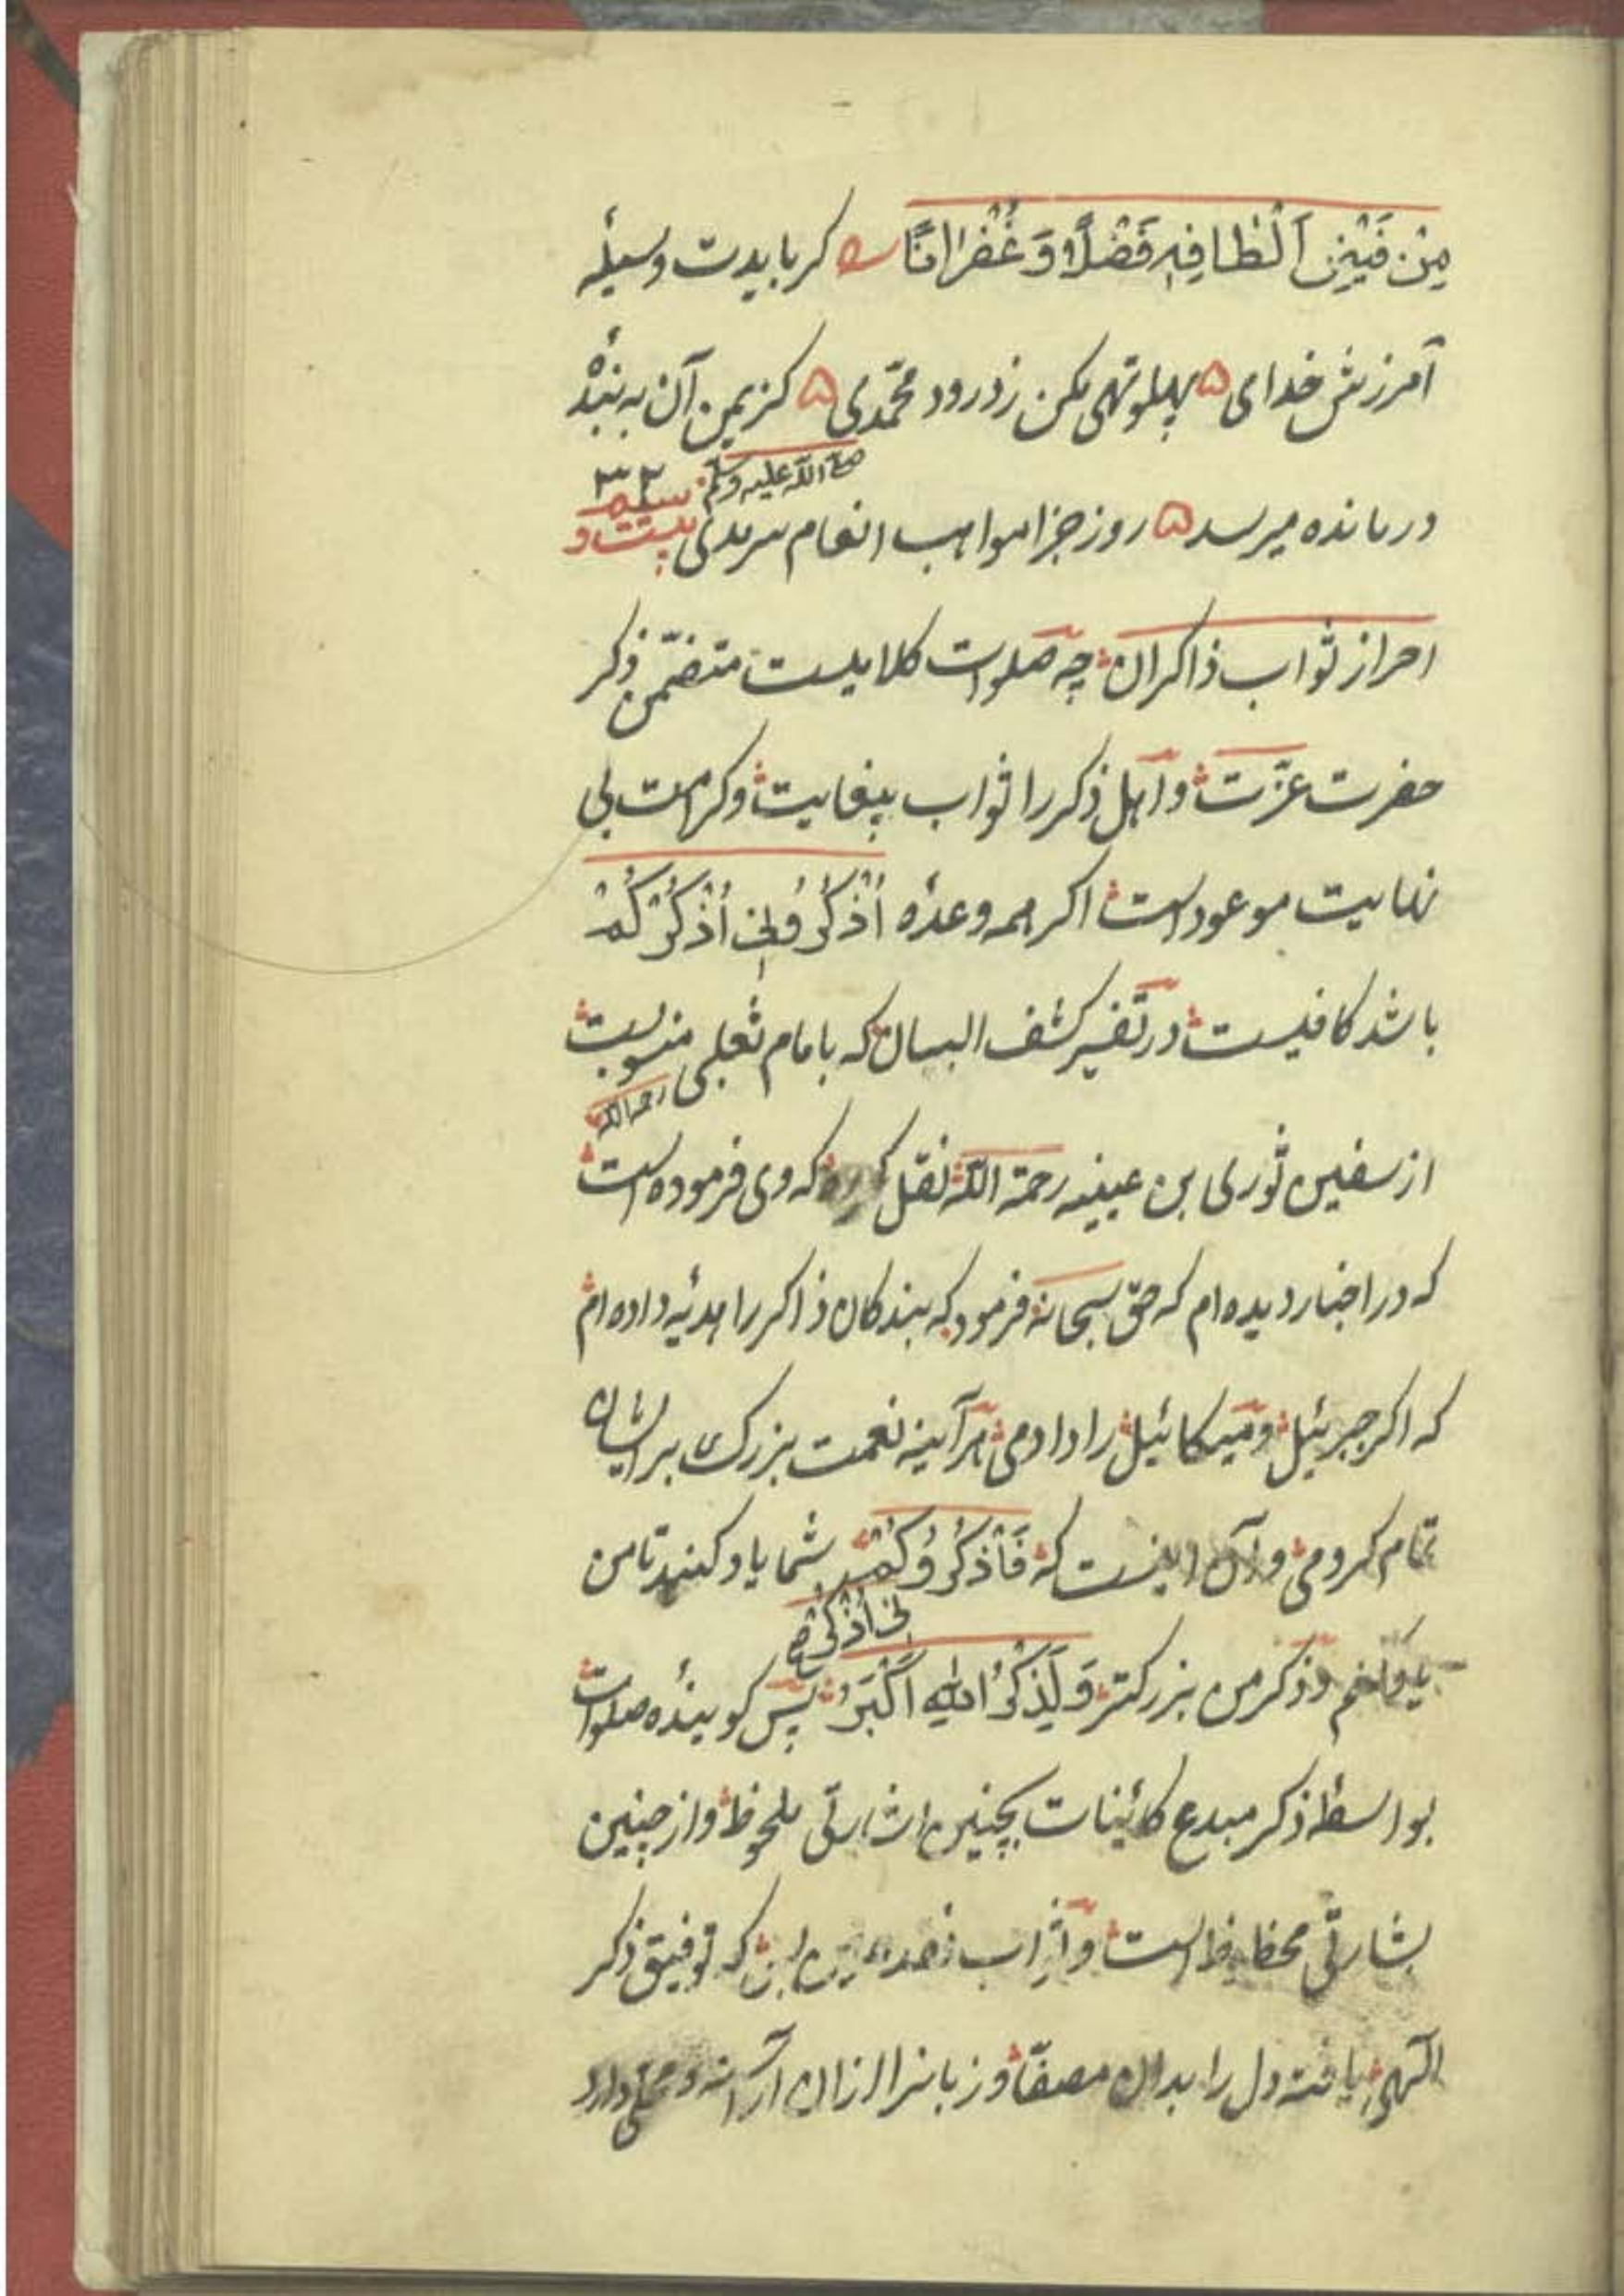 مِنْ فَیْضِ اَلْطافِهِ فَضْلًا وَ غُفْرَانًا کر بایدت وسیلهٔ
آمرزش خدای ۵ پهلو تهی مکن ز درود محمّدی ۵ کز یمن آن به بندهٔ
صلی الله علیه وسلم ۳۲
درمانده میرسد ۵ روز جزا مواهب انعام سرمدی بیست و سیم
احراز ثواب ذاکران چه صلوات کلامیست متضمّن ذکر
حضرت عزّت و اهل ذکر را ثواب بیغایت و کرامت بی
نهایت موعود است اکر همه وعدهٔ اُذْکُرُونِی اُذْکُرْکُمْ
باشد کافیست در تفسیر کشف البیان که بامام ثعلبی منسوبست
رحمه الله
از سفین ثوری بن عیینه رحمة الله نقل کرده که وی فرموده است
که در اخبار دیده ام که حق سبحانه فرمود که بندکان ذاکر را هدیّه داده ام
که اکر جبرئیل و میکائیل را دادمی هر آینه نعمت بزرک بر ایشان
تمام کردمی و آن اینست که فَاذْکُرُو کُمْ شما یاد کنید تا من
نِی اَذْکُرْ صح
و ذکر من بزرکتر وَلَذِکْرُ اللهِ اَکْبَرُ پس کویندهٔ صلوات
بواسطهٔ ذکر مبدع کائینات بچنین اشارتی ملحوظ و از چنین
بشارتی محظوظ است و که توفیق ذکر
الهی یافته دل را بدان مصفّا و زبانرا ازان آراسته و محلی دارد